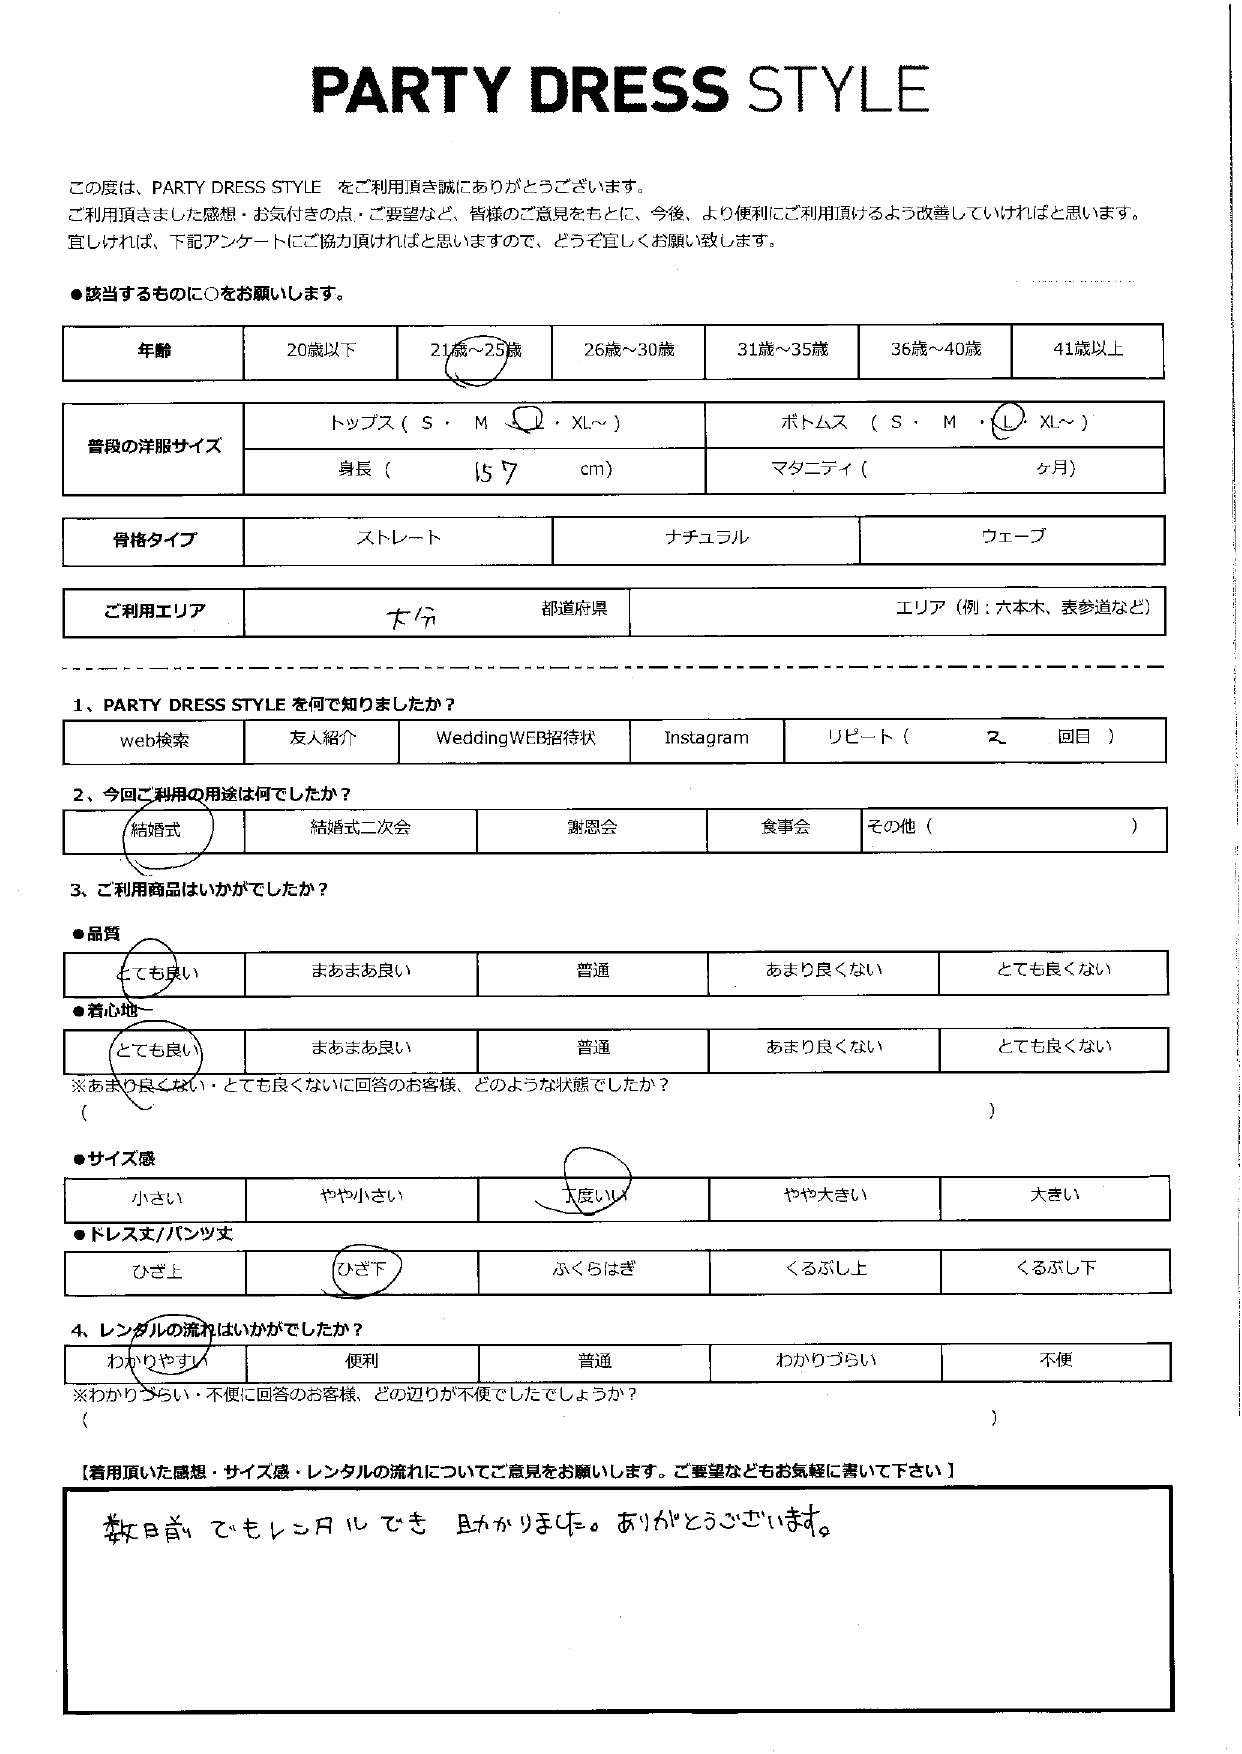 PARTY DRESS STYLE
この度は、PARTY DRESS STYLE　をご利用頂き誠にありがとうございます。
ご利用頂きました感想・お気付きの点・ご要望など、皆様のご意見をもとに、今後、より便利にご利用頂けるよう改善していければと思います。
宜しければ、下記アンケートにご協力頂ければと思いますので、どうぞ宜しくお願い致します。
●該当するものに○をお願いします。
年齢 20歳以下 21歳～25歳 26歳～30歳 31歳～35歳 36歳～40歳 41歳以上
普段の洋服サイズ トップス ( S ・ M ・ L ・ XL～ ) ボトムス ( S ・ M ・ L ・ XL～ )
身長 ( 157 cm) マタニティ ( ヶ月)
骨格タイプ ストレート ナチュラル ウェーブ
ご利用エリア 大分 都道府県 エリア（例：六本木、表参道など）
1、PARTY DRESS STYLE を何で知りましたか？
web検索 友人紹介 WeddingWEB招待状 Instagram リピート ( 2 回目 )
2、今回ご利用の用途は何でしたか？
結婚式 結婚式二次会 謝恩会 食事会 その他 ( )
3、ご利用商品はいかがでしたか？
●品質
とても良い まあまあ良い 普通 あまり良くない とても良くない
●着心地
とても良い まあまあ良い 普通 あまり良くない とても良くない
※あまり良くない・とても良くないに回答のお客様、どのような状態でしたか？
( )
●サイズ感
小さい やや小さい 丁度いい やや大きい 大きい
●ドレス丈/パンツ丈
ひざ上 ひざ下 ふくらはぎ くるぶし上 くるぶし下
4、レンタルの流れはいかがでしたか？
わかりやすい 便利 普通 わかりづらい 不便
※わかりづらい・不便に回答のお客様、どの辺りが不便でしたでしょうか？
( )
【着用頂いた感想・サイズ感・レンタルの流れについてご意見をお願いします。ご要望などもお気軽に書いて下さい】
数日前でもレンタルでき 助かりました。ありがとうございます。